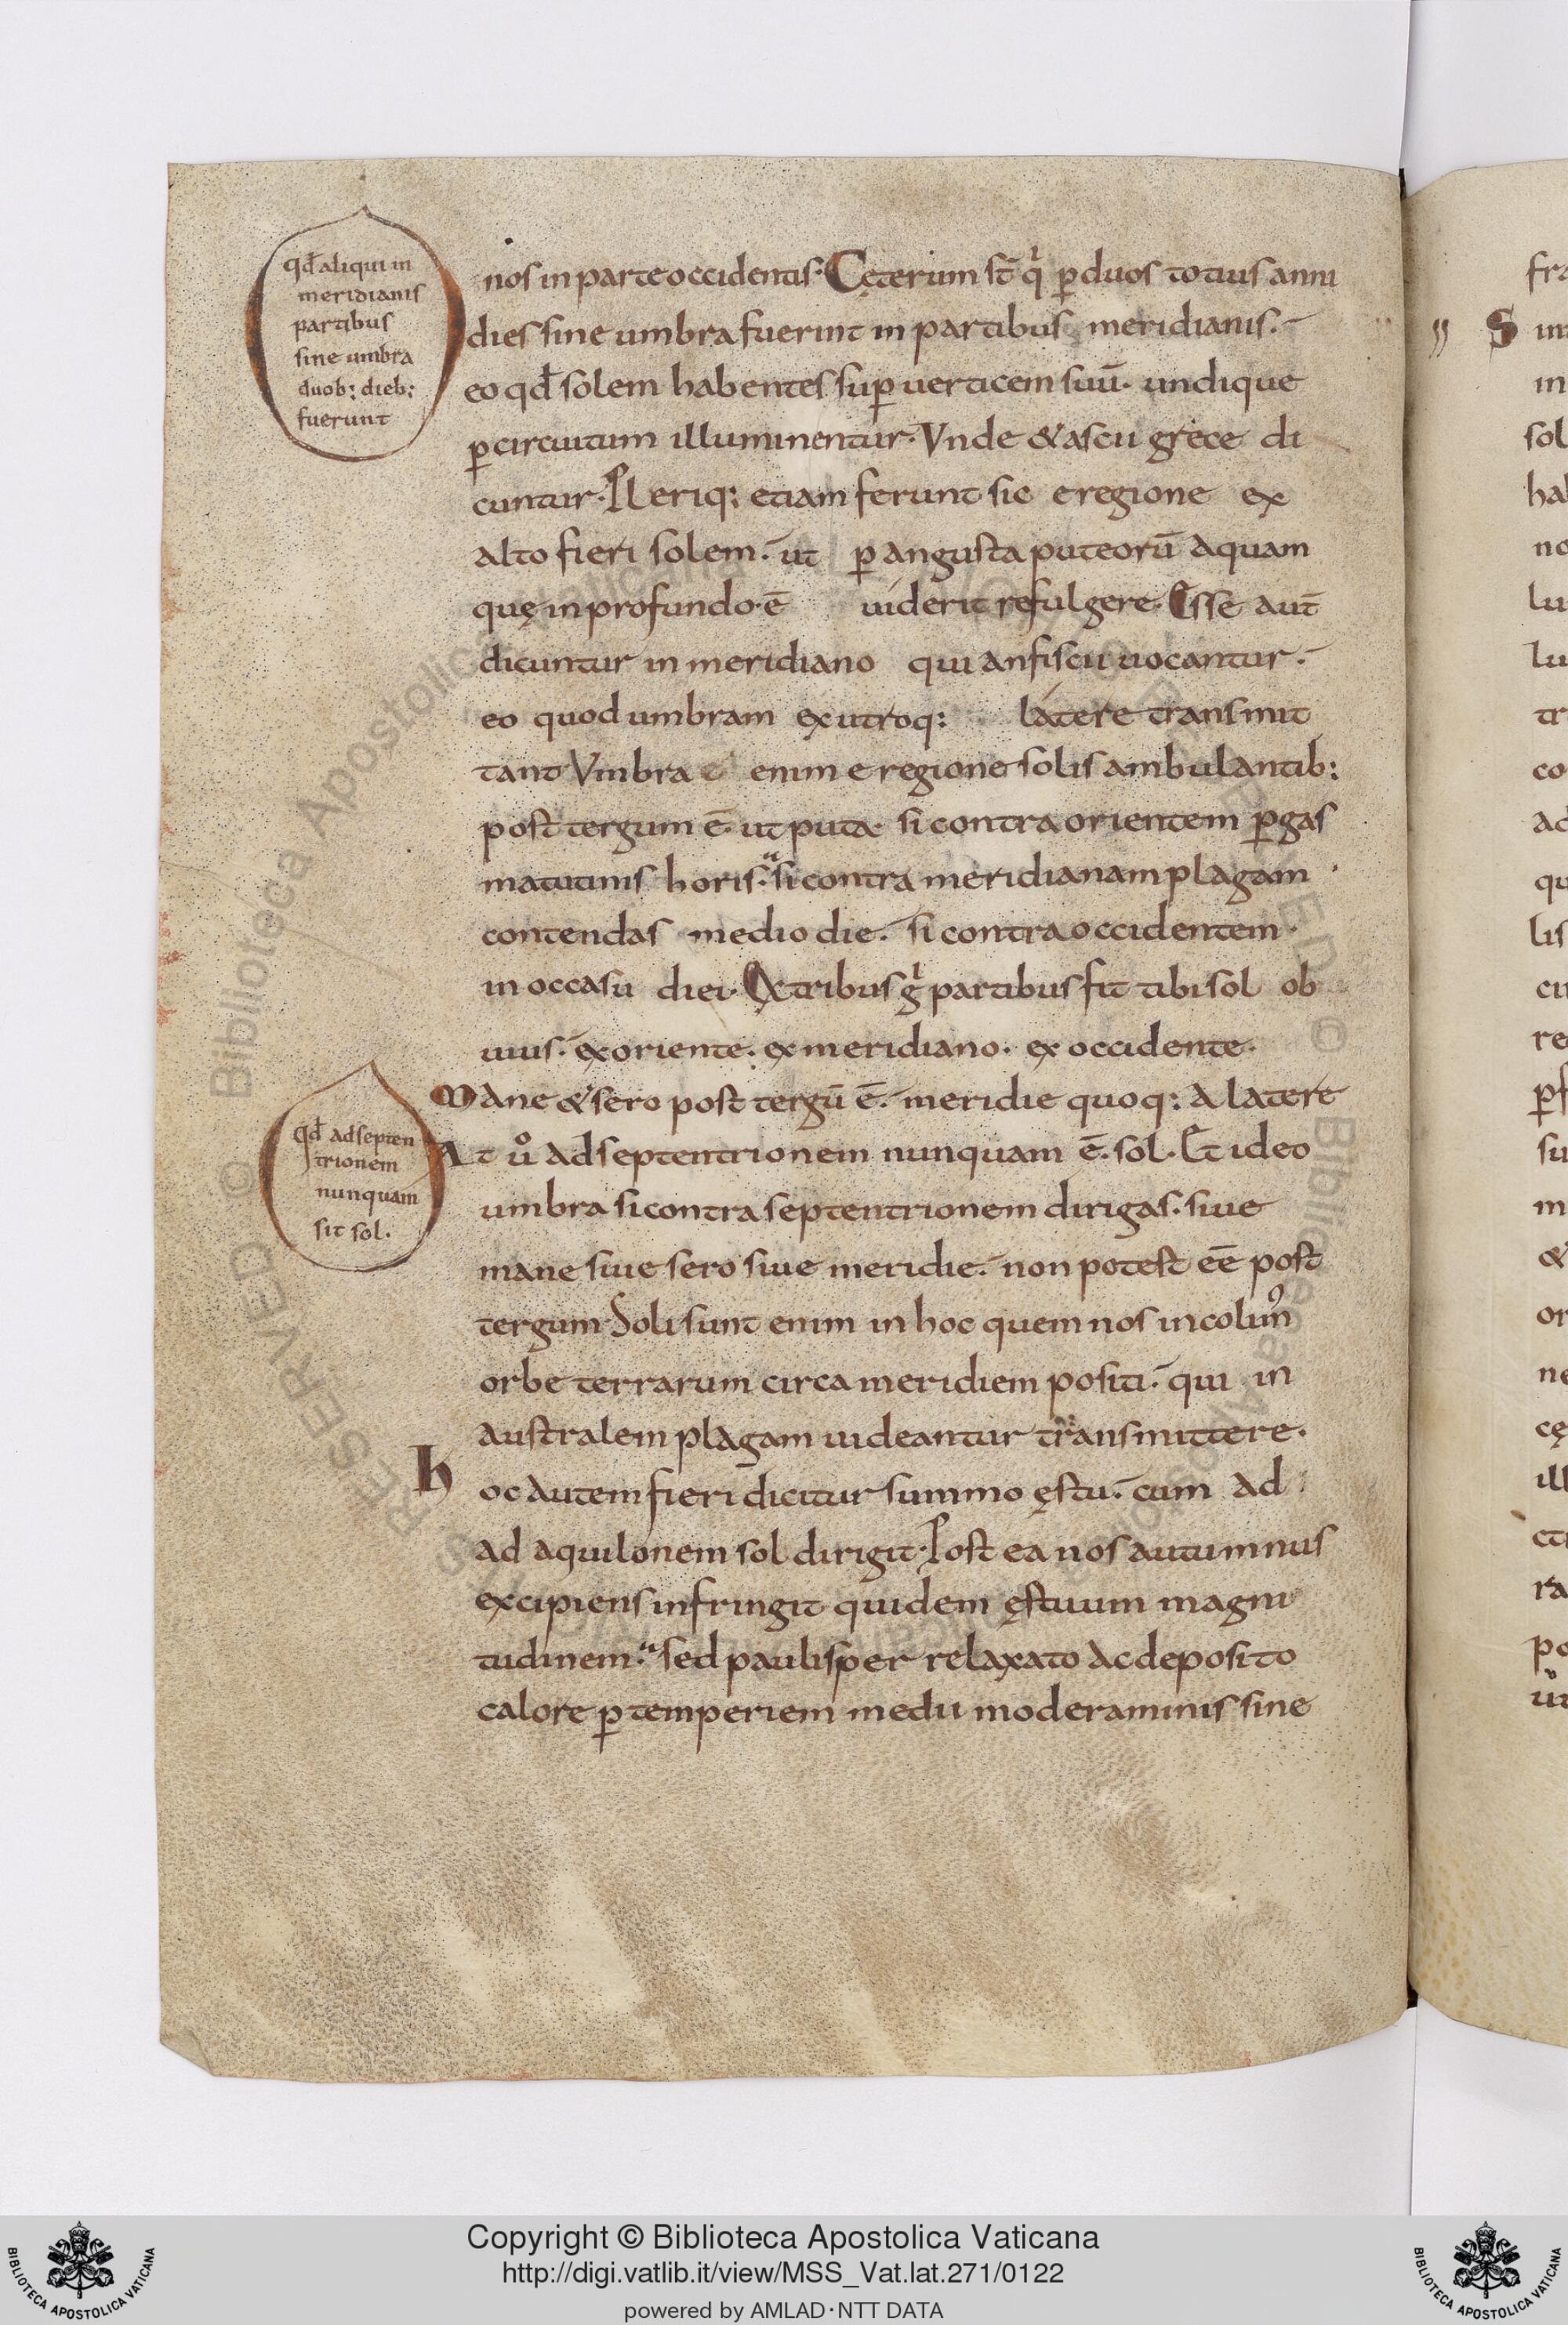 qđ aliqui in
meridianis
partibus
sine umbra
duob: dieb:
fuerunt
nos in parte occidentis. Cęterum st̄ qͥ ꝑ duos totius anni
dies sine umbra fuerint in partibus meridianis.
eo qđ solem habentes suꝑ uerticem suū. undique
ꝑ circuitum illuminentur. Vnde & ascii grece di
cuntur. Pleriq: etiam ferunt sic e regione ex
alto fieri solem. ut ꝑ angusta puteorū aquam
quę in profundo ē uiderit refulgere. Esse aut̄
dicuntur in meridiano qui anfiscii uocantur.
eo quod umbram ex utroq: latere transmit
tant Vmbra enim e regione solis ambulantib:
post tergum ē. ut puta si contra orientem ꝑgas
matutinis horis. si contra meridianam plagam
contendas medio die. si contra occidentem.
in occasu diei. Ex tribus gͥ partibus fit tibi sol ob
uius. ex oriente. ex meridiano. ex occidente.
Mane & sero post tergū ē. meridie quoq: a latere
qđ ad septen
trionem
nunquam
sit sol.
At uͦ ad septentrionem nunquam ē. sol. Et ideo
umbra si contra septentrionem dirigas. siue
mane siue sero siue meridie. non potest eē post
tergum. Soli sunt enim in hoc quem nos incolimꝰ
orbe terrarum circa meridiem positi. qui in
australem plagam uideantur transmittere.
hoc autem fieri dicitur summo ęstu. cum ad
ad aquilonem sol dirigit. Post ea nos autumnus
excipiens infringit quidem ęstuum magni
tudinem. sed paulisper relaxato ac deposito
calore ꝑ temperiem medii moderaminis sine
fra
S im
in
sol
hab
no
lu
lu
tr
co
ad
qu
lis
cu
re
ꝑf
su
m
&
or
ne
cę
ill
ct
ra
po
ut
Copyright © Biblioteca Apostolica Vaticana
http://digi.vatlib.it/view/MSS_Vat.lat.271/0122
powered by AMLAD·NTT DATA
BIBLIOTECA APOSTOLICA VATICANA
BIBLIOTECA APOSTOLICA VATICANA